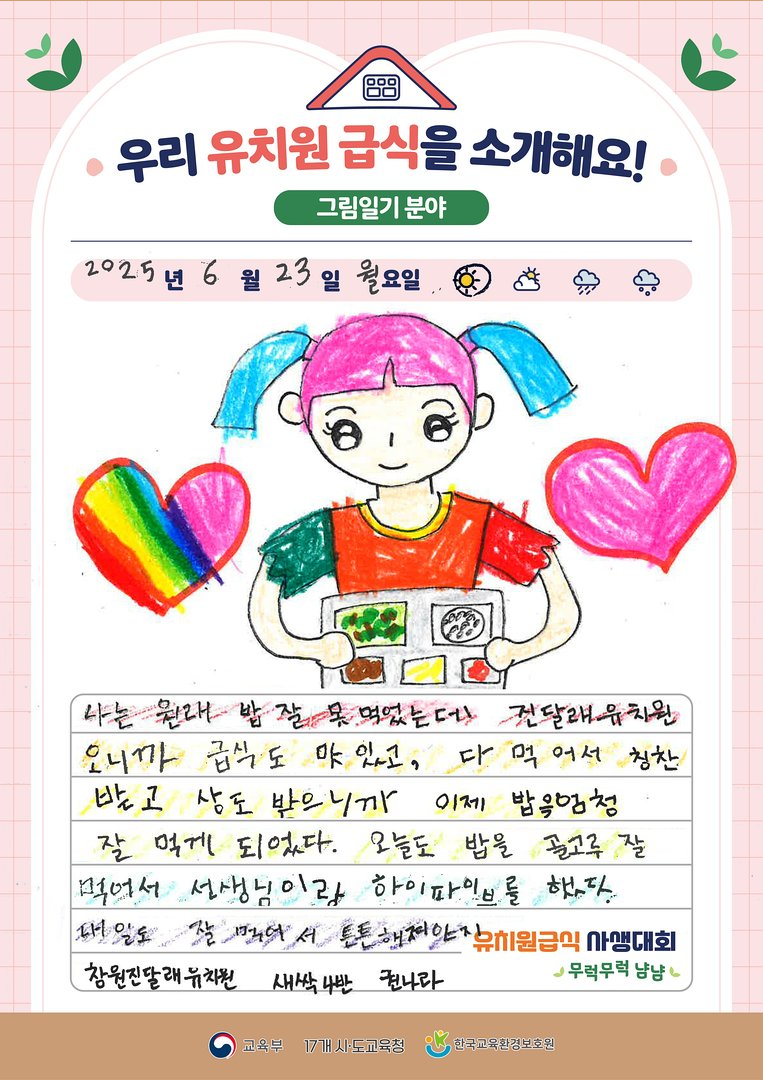 우리 유치원 급식을 소개해요!
그림일기 분야
2025년 6월 23일 월요일
나는 원래 밥 잘 못 먹었는데 진달래유치원
오니까 급식도 맛있고, 다 먹어서 칭찬
받고 상도 받으니까 이제 밥을엄청
잘 먹게 되었다. 오늘도 밥을 골고루 잘
먹어서 선생님이랑 하이파이브를 했다.
내일도 잘 먹어서 튼튼해져야지
유치원급식 사생대회
무럭무럭 냠냠
창원진달래유치원 새싹4반 권나라
교육부 17개 시·도교육청 한국교육환경보호원